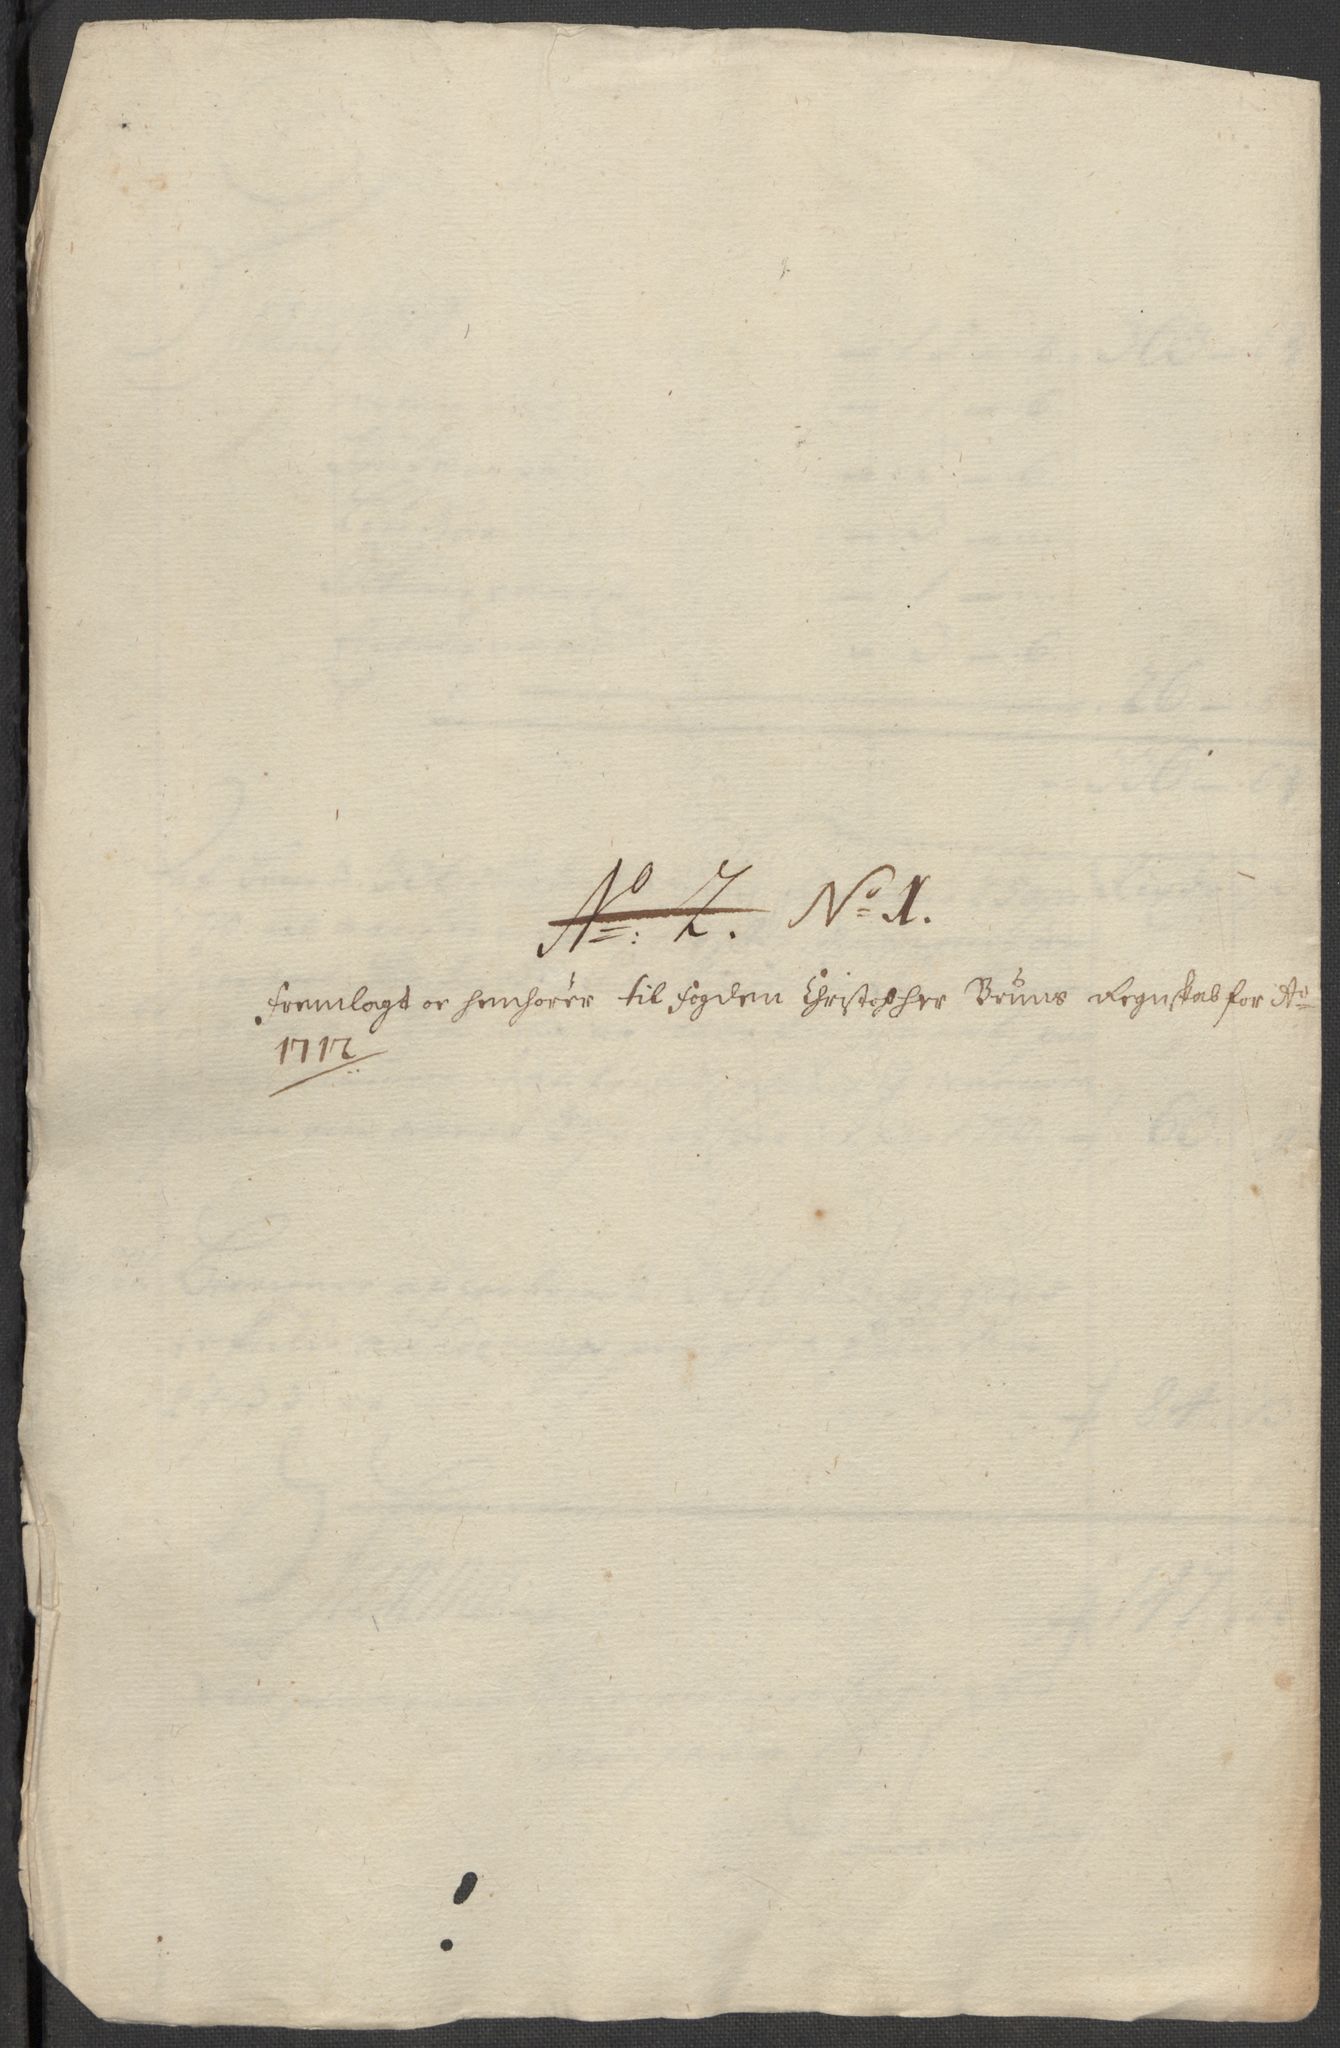 No: 2. No 1.
Fremlagt oc henhører til Fogden Christopher Bruns Regnskab for Ao
1712